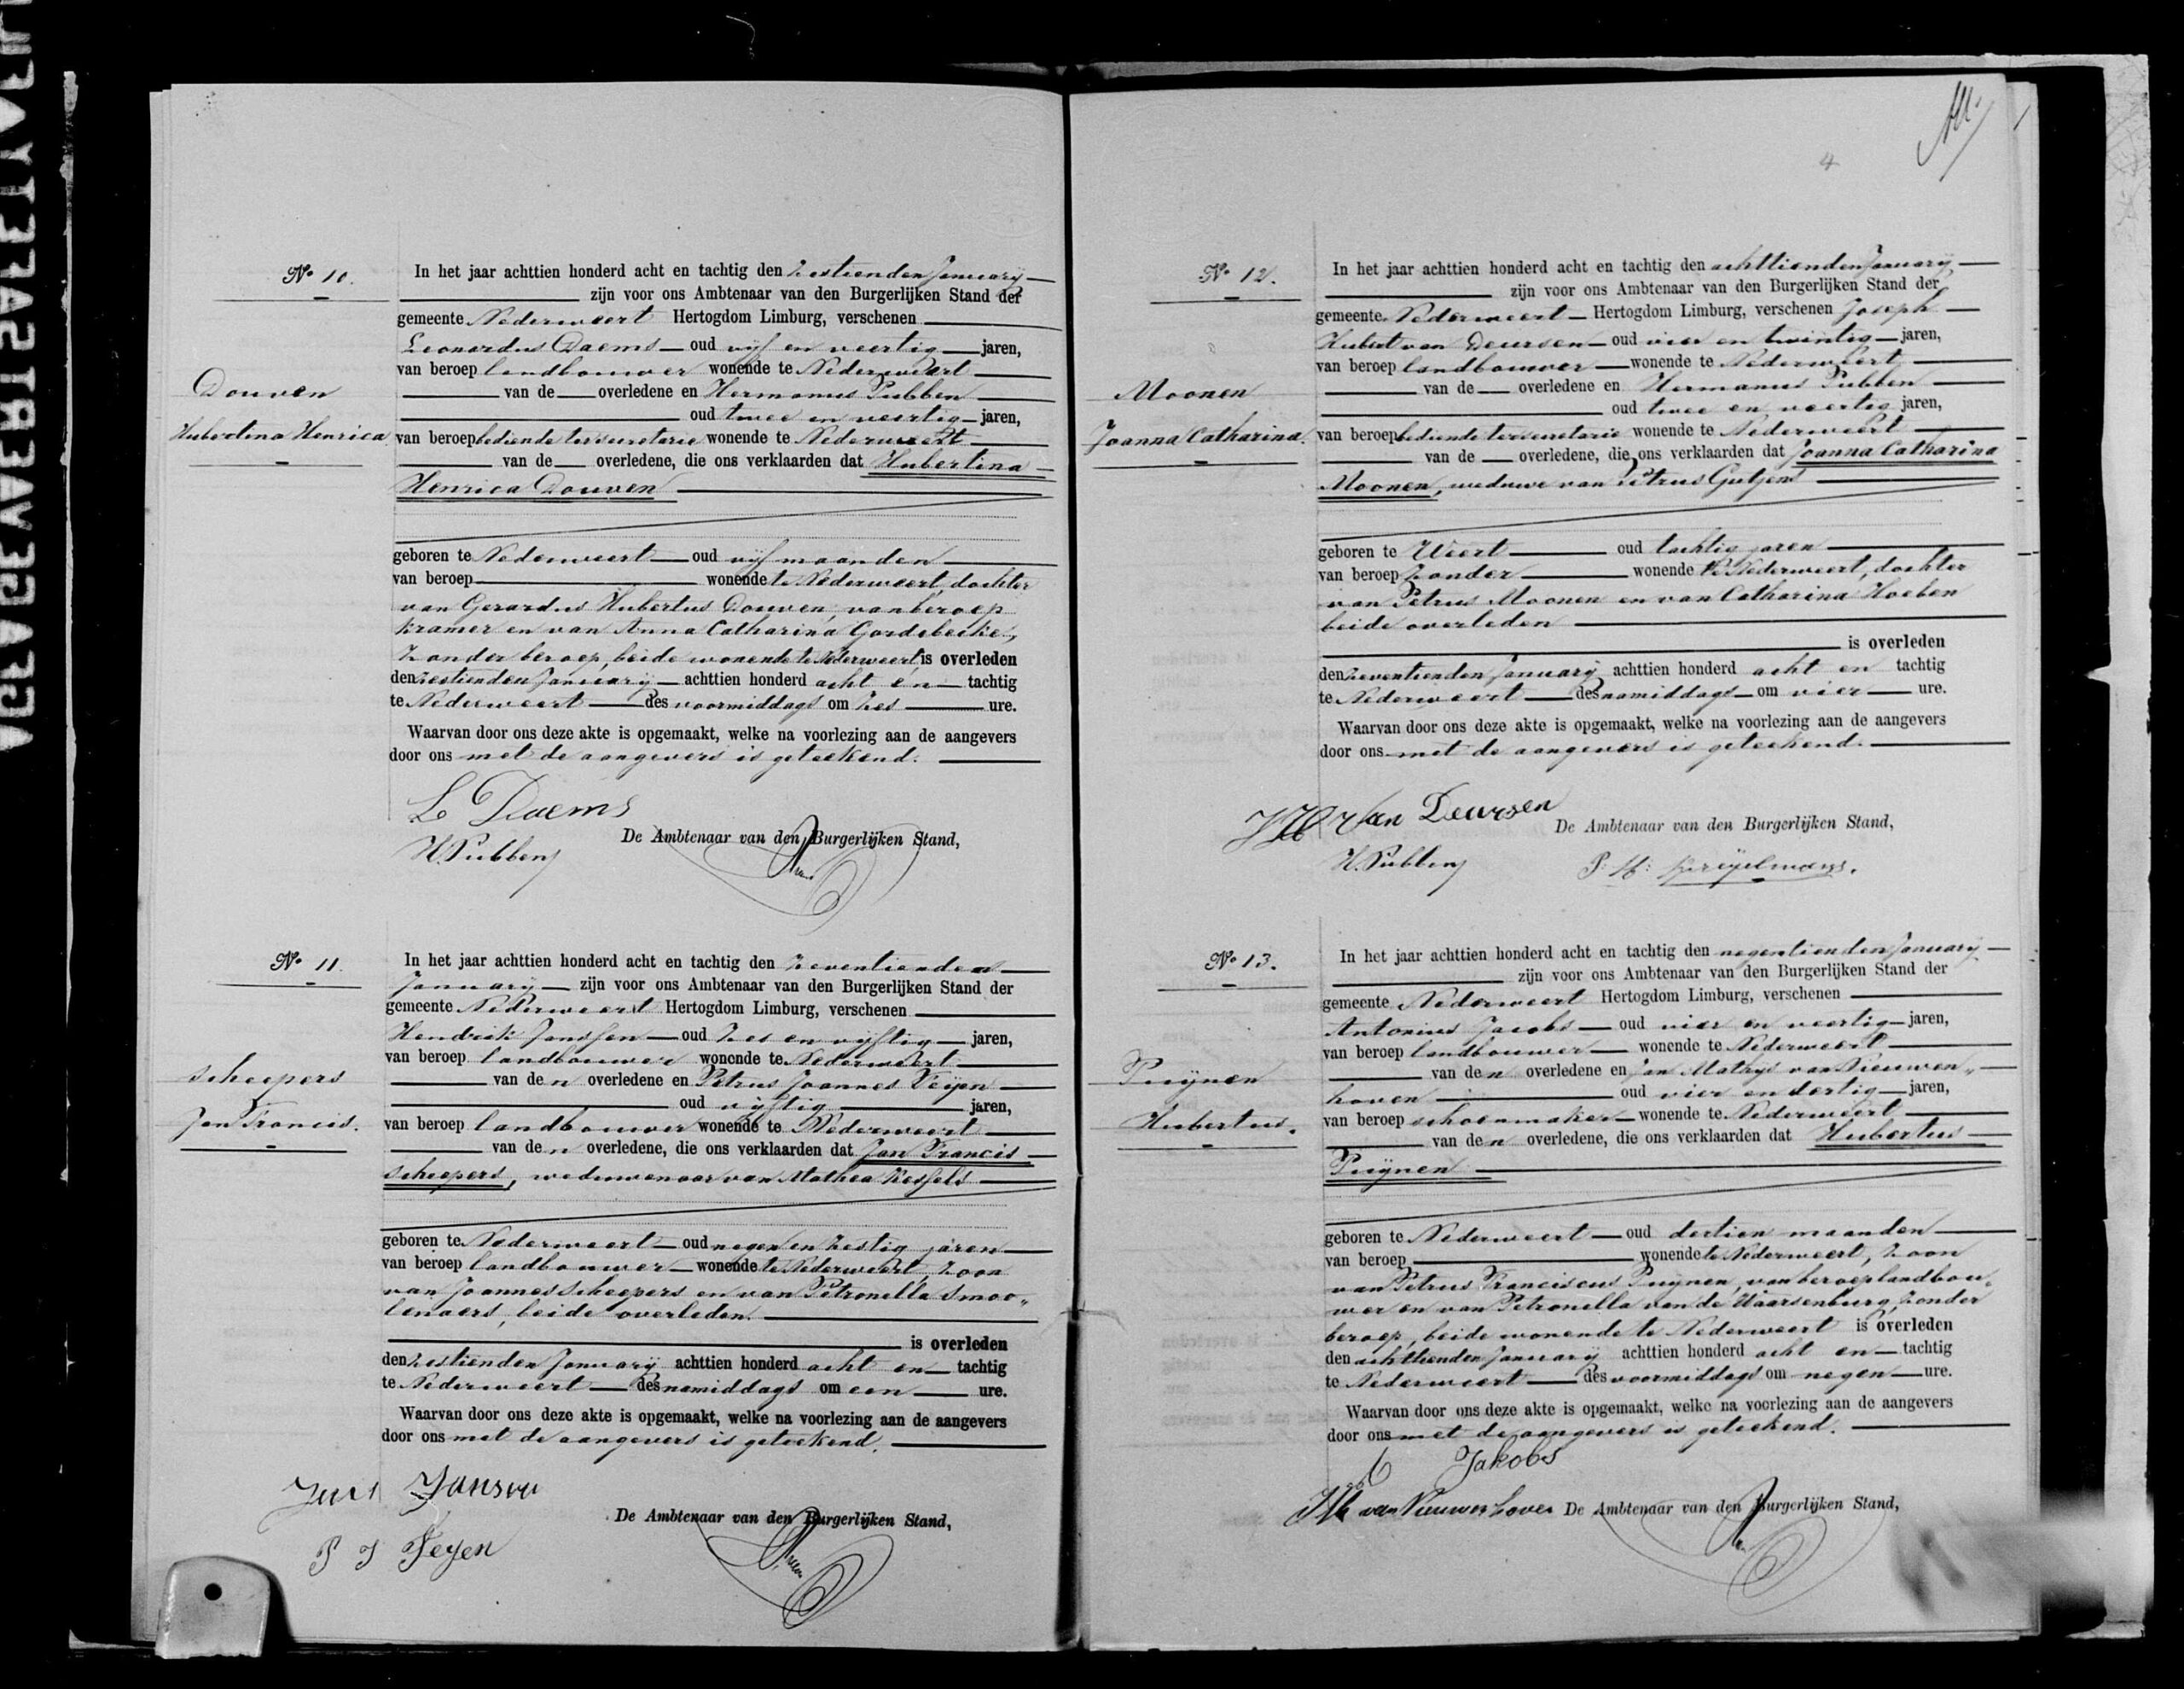 4
№ 10.
Douven
Hubertina Henrica.
In het jaar achttien honderd acht en tachtig den zestienden January
zijn voor ons Ambtenaar van den Burgerlijken Stand der
gemeente Nederweert Hertogdom Limburg, verschenen
Leonardus Daems oud vijf en veertig jaren,
van beroep landbouwer wonende te Nederweert
van de overledene en Hermanus Pubben
oud twee en veertig jaren,
van beroep bediende ter secretarie wonende te Nederweert
van de overledene, die ons verklaarden dat Hubertina
Henrica Douven
geboren te Nederweert oud vijf maanden
van beroep wonende te Nederweert, dochter
van Gerardus Hubertus Douven, van beroep
kramer en van Anna Catharina
zonder beroep, beide wonende te Nederweert, is overleden
den zestienden January achttien honderd acht en tachtig
te Nederweert des voormiddags om zes ure.
Waarvan door ons deze akte is opgemaakt, welke na voorlezing aan de aangevers
door ons met de aangevers is geteekend.
L Daems
H. Pubben
De Ambtenaar van den Burgerlijken Stand,
№ 11.
Scheepers
Jan Francis.
In het jaar achttien honderd acht en tachtig den zeventienden
January zijn voor ons Ambtenaar van den Burgerlijken Stand der
gemeente Nederweert Hertogdom Limburg, verschenen
Hendrik Janssen oud zes en vijftig jaren,
van beroep landbouwer wonende te Nederweert
van den overledene en Petrus Joannes Feijen
oud vijftig jaren,
van beroep landbouwer wonende te Nederweert
van den overledene, die ons verklaarden dat Jan Francis
Scheepers, weduwenaar van Mathea Kessels
geboren te Nederweert oud negen en zestig jaren
van beroep landbouwer wonende te Nederweert, zoon
van Joannes Scheepers en van Petronella Smoo„
lenaers, beide overleden.
is overleden
den zestienden January achttien honderd acht en tachtig
te Nederweert des namiddags om een ure.
Waarvan door ons deze akte is opgemaakt, welke na voorlezing aan de aangevers
door ons met de aangevers is geteekend.
Jansen
P J Feyen
De Ambtenaar van den Burgerlijken Stand,
№ 12.
Moonen
Joanna Catharina.
In het jaar achttien honderd acht en tachtig den achttienden January
zijn voor ons Ambtenaar van den Burgerlijken Stand der
gemeente Nederweert Hertogdom Limburg, verschenen Joseph
Hubert van Deursen oud vier en twintig jaren,
van beroep landbouwer wonende te Nederweert
van de overledene en Hermanus Pubben
oud twee en veertig jaren,
van beroep bediende ter secretarie wonende te Nederweert
van de overledene, die ons verklaarden dat Joanna Catharina
Moonen, weduwe van Petrus Gutjens
geboren te Weert oud tachtig jaren
van beroep zonder wonende te Nederweert, dochter
van Petrus Moonen en van Catharina Hoeben
beide overleden
is overleden
den zeventienden January achttien honderd acht en tachtig
te Nederweert des namiddags om vier ure.
Waarvan door ons deze akte is opgemaakt, welke na voorlezing aan de aangevers
door ons met de aangevers is geteekend.
J H van Deursen
H. Pubben
De Ambtenaar van den Burgerlijken Stand,
№ 13.
Puijnen
Hubertus.
In het jaar achttien honderd acht en tachtig den negentienden January
zijn voor ons Ambtenaar van den Burgerlijken Stand der
gemeente Nederweert Hertogdom Limburg, verschenen
Antonius Jacobs oud vier en veertig jaren,
van beroep landbouwer wonende te Nederweert
van den overledene en Jan Mathijs van Nieuwen„
hoven oud vier en dertig jaren,
van beroep schoenmaker wonende te Nederweert
van den overledene, die ons verklaarden dat Hubertus
Puijnen
geboren te Nederweert oud dertien maanden
van beroep wonende te Nederweert, zoon
van Petrus Franciscus Puijnen, van beroep landbou„
wer en van Petronella van de Waarsenburg, zonder
beroep, beide wonende te Nederweert is overleden
den achttienden January achttien honderd acht en tachtig
te Nederweert des voormiddags om negen ure.
Waarvan door ons deze akte is opgemaakt, welke na voorlezing aan de aangevers
door ons met de aangevers is geteekend.
Jakobs
van Nieuwenhoven
De Ambtenaar van den Burgerlijken Stand,